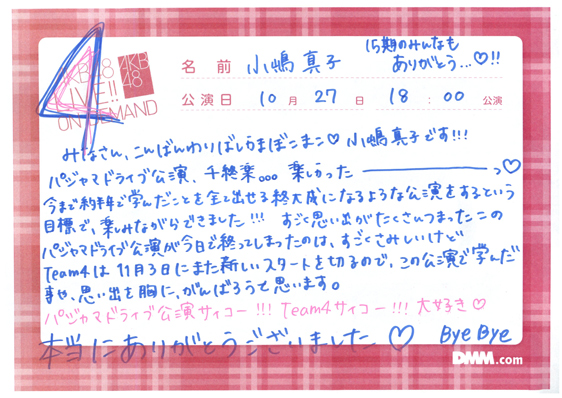 4
AKB48
LIVE!!
ON DEMAND
AKB
48
名前 小嶋真子
15期のみんなも
ありがとう…♡!!
公演日 10月27日 18:00公演
みなさん、こんばんわりばしかまぼこまこ♡小嶋真子です!!!
パジャマドライブ公演、千終楽。。。楽しかったーーっ♡
今まで約半年で学んだことを全て出せる終大成になるような公演をするという
目標で、楽しみながらできました!!! すごく思い出がたくさんつまったこの
パジャマドライブ公演が今日で終ってしまったのは、すごくさみしいけど
Team4は11月3日にまた新しいスタートを切るので、この公演で学んだ
事や、思い出を胸に、がんばろうと思います。
パジャマドライブ公演サイコー!!! Team4サイコー!!! 大好き♡
本当にありがとうございました♡ ByeBye
DMM.com